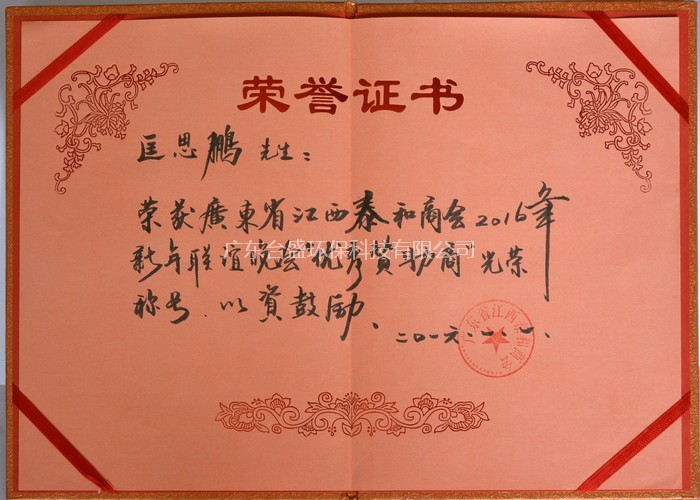 荣誉证书
匡思鹏 先生：
荣获廣東省江西泰和商会2016年
新年联谊晚会"优秀赞助商"光荣
称号.以资鼓励、
二〇一六.一.一.
广东省江西泰和商会
广东台盛环保科技有限公司